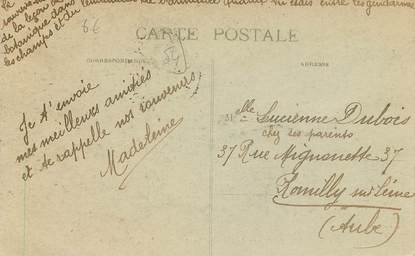 souvenir
de la leçon de
botanique dans
les champs et du
quand tu étais entre les gendarmes
8€
CARTE POSTALE
CORRESPONDANCE
ADRESSE
Je t'envoie
mes meilleures amitiés
et te rappelle nos souvenirs
Madeleine
Melle Lucienne Dubois
chez ses parents
37 Rue Mignonette 37
Romilly sur Seine
(Aube)